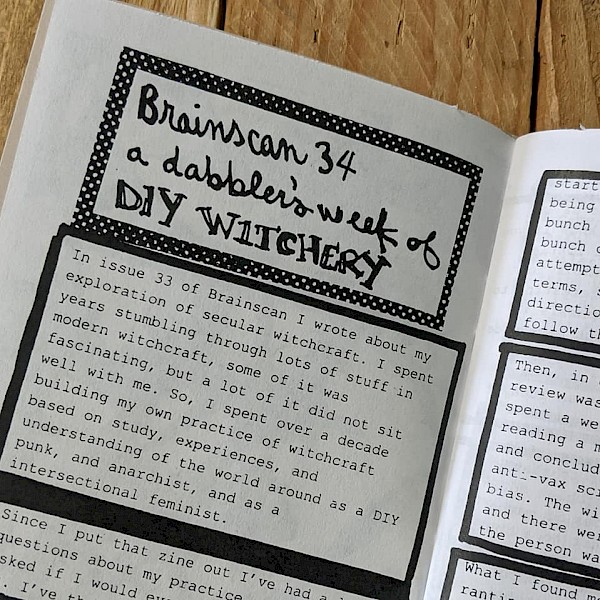 Brainscan 34
a dabbler's week of
DIY WITCHERY
In issue 33 of Brainscan I wrote about my
exploration of secular witchcraft. I spent
years stumbling through lots of stuff in
modern witchcraft, some of it was
fascinating, but a lot of it did not sit
well with me. So, I spent over a decade
building my own practice of witchcraft
based on study, experiences, and
understanding of the world around as a DIY
punk, and anarchist, and as a
intersectional feminist.
Since I put that zine out I've had a
questions about my practice
asked if I would
I've
start
being
bunch
bunch
attempt
terms,
directio
follow
Then, in
review was
spent a
reading a
and conclud
anti-vax
bias. The
and there
the person
What I found